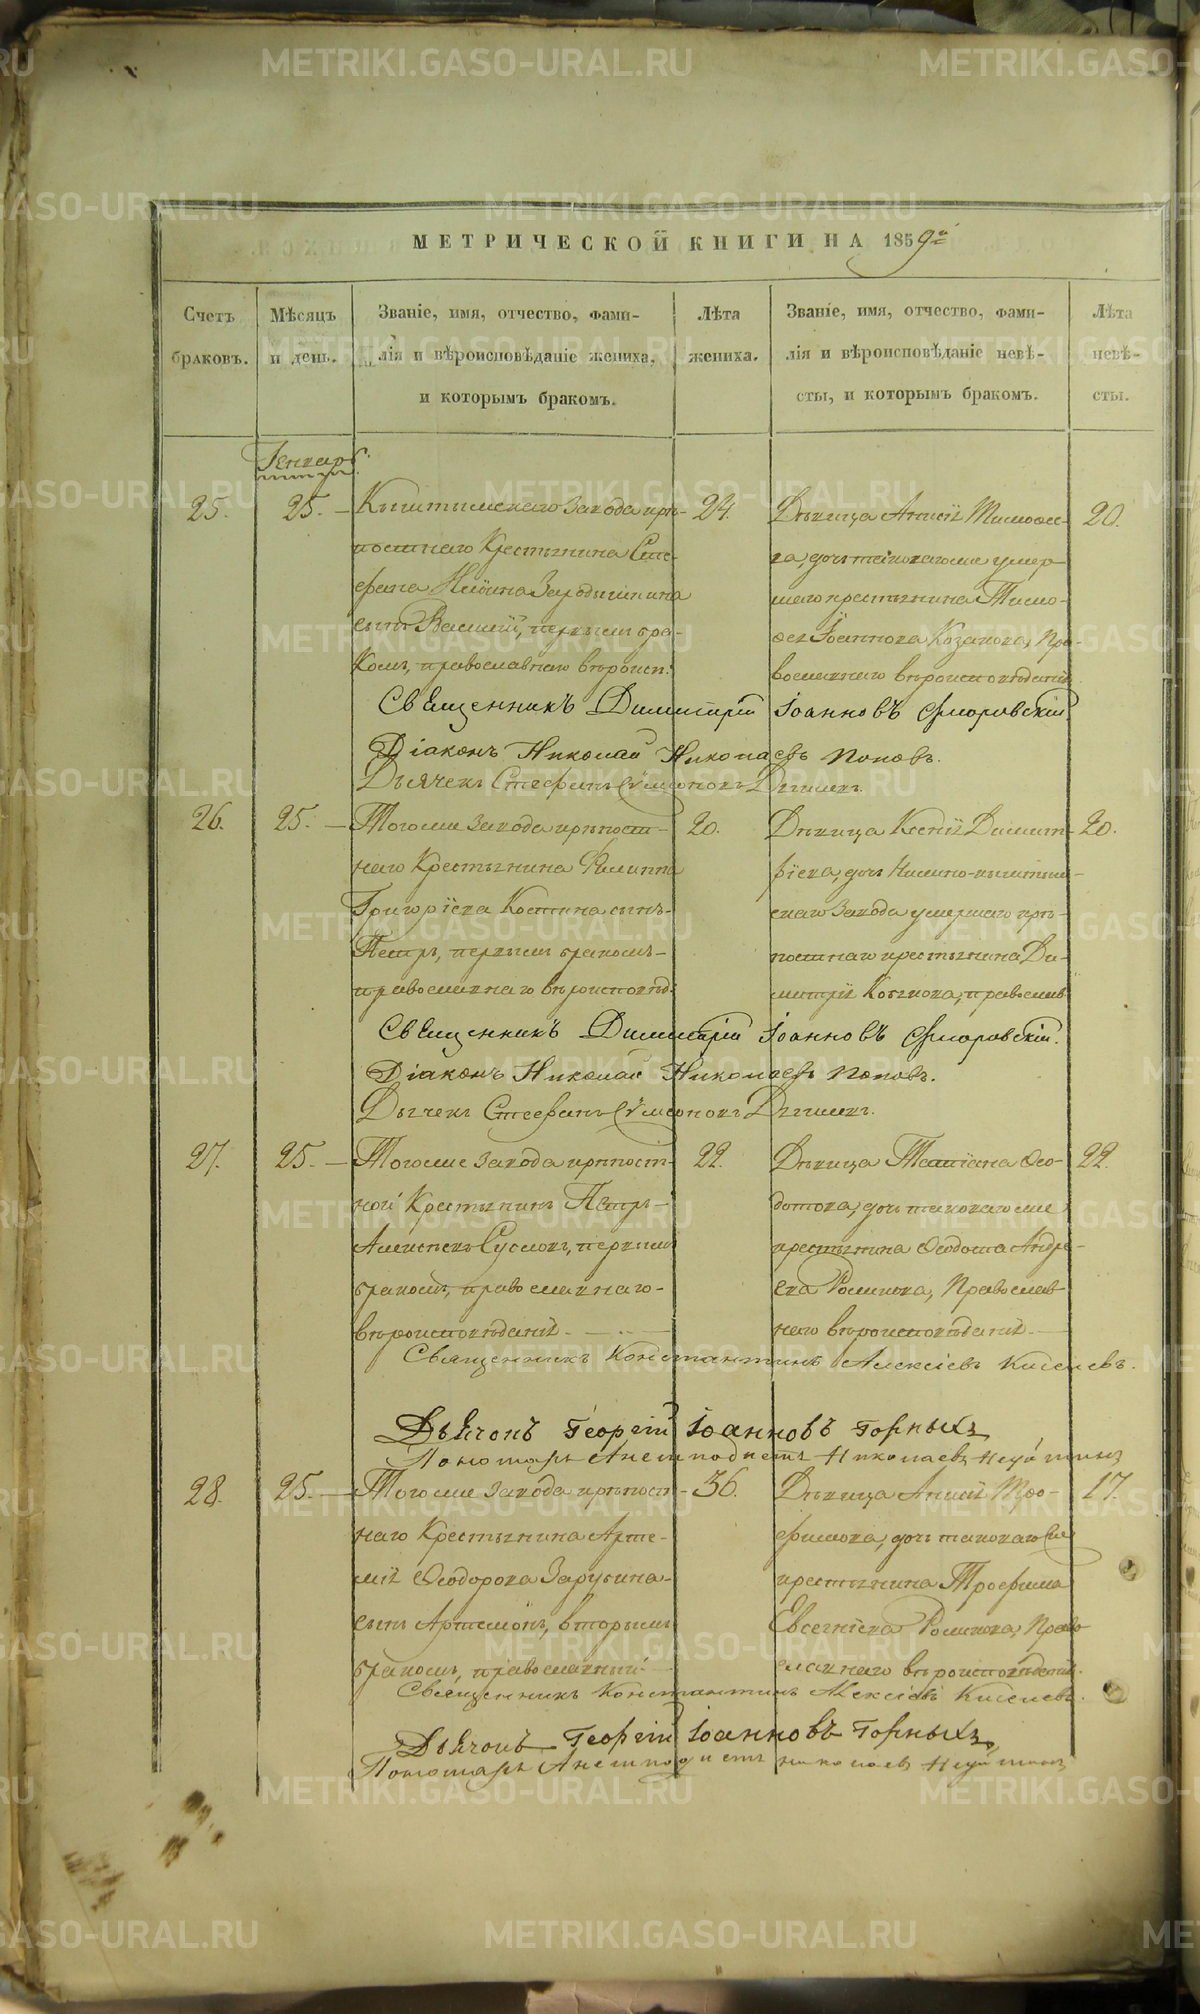 МЕТРИЧЕСКОЙ КНИГИ НА 1859й
Счетъ браковъ.
Мѣсяцъ и день.
Званіе, имя, отчество, фами-
лія и вѣроисповѣданіе жениха,
и которымъ бракомъ.
Лѣта жениха.
Званіе, имя, отчество, фами-
лія и вѣроисповѣданіе невѣ-
сты, и которымъ бракомъ.
Лѣта невѣ-
сты.
Генварь.
25.
25.
Кыштымскаго Завода крѣ-
постнаго Крестьянина Сте-
фана
сынъ Василій, первымъ бра-
комъ, православнаго вѣроисп:
24.
Дѣвица Анисія Тимоѳее-
ва, дочь таковагоже умер-
шаго крестьянина Тимо-
ѳея Іоаннова Козакова, Пра-
вославнаго вѣроисповѣданія.
20.
Священникъ Димитрій Іоанновъ Флоровскій
Діаконъ Николай Николаевъ Поповъ.
Дьячекъ Стефанъ Сѵмеоновъ Дягилевъ.
26.
25.
Тогоже Завода крѣпост-
наго Крестьянина Филиппа
Григоріева Костина сынъ
Петръ, первымъ бракомъ
православнаго вѣроисповѣд.
20.
Дѣвица Ксенія Димит-
ріева, дочь Нижно-кыштым-
скаго Завода умершаго крѣ-
постнаго крестьянина Ди-
митрія православ
20.
Священникъ Димитрій Іоанновъ Флоровскій.
Діаконъ Николай Николаевъ Поповъ.
Дьячекъ Стефанъ Сѵмеоновъ Дягилевъ.
27.
25.
Тогоже Завода крѣпост-
ной Крестьянинъ Петръ
Алексѣевъ Сусловъ, первымъ
бракомъ, православнаго
вѣроисповѣданія.
22.
Дѣвица Татіана Ѳео-
дотова, дочь таковагоже
крестьянина Ѳеодота Андре-
ева Православ-
наго вѣроисповѣданія.
22.
Священникъ Константинъ Алексіевъ Киселевъ.
Дьяконъ Георгій Іоанновъ Горныхъ
Пономарь Николаевъ
28.
25.
Тогоже Завода крѣпост-
наго Крестьянина Арте-
мія Ѳеодорова Зарубина
сынъ вторымъ
бракомъ, православный
36.
Дѣвица Анисія Тро-
фимова, дочь таковагоже
крестьянина Трофима
Евсегніева Право-
славнаго вѣроисповѣданія.
17.
Священникъ Константинъ Алексіевъ Киселевъ.
Дьяконъ Георгій Іоанновъ Горныхъ
Пономарь Николаевъ
METRIKI.GASO-URAL.RU